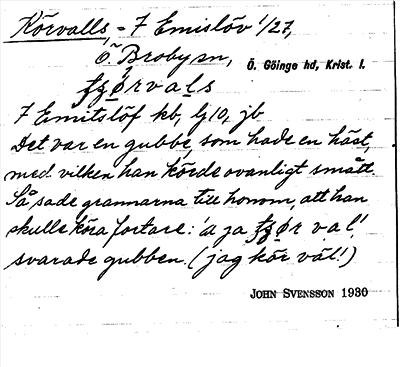 Körvalls, - 7 Emislöv 1/27,
Ö Broby sn, Ö. Göinge hd, Krist. l.
7 Emitslöf kb, lj 10, jb
Det var en gubbe, som hade en häst,
med vilken han körde ovanligt smått.
Så sade grannarna till honom, att han
skulle köra fortare: 'a ja
svarade gubben. (jag kör väl!)
JOHN SVENSSON 1930